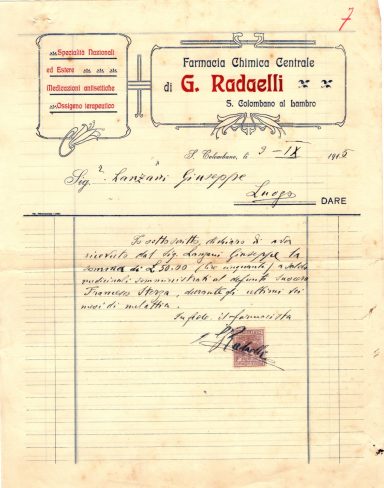 7
Specialità Nazionali
ed Estere
Medicazioni antisettiche
Ossigeno terapeutico
Farmacia Chimica Centrale
di G. Radaelli
S. Colombano al Lambro
S. Colombano, li 9 - IX 191
Sig.r Lanzani Giuseppe
Luogo
DARE
Io sottoscritto, dichiaro di aver
ricevuto dal Sig. Lanzani Giuseppe la
somma di L 50.00 (Lire cinquanta) a saldo
medicinali somministrati al defunto suocero
Francesco Sterza, durante gli ultimi sei
mesi di malattia.
In fede il farmacista
G. Radaelli